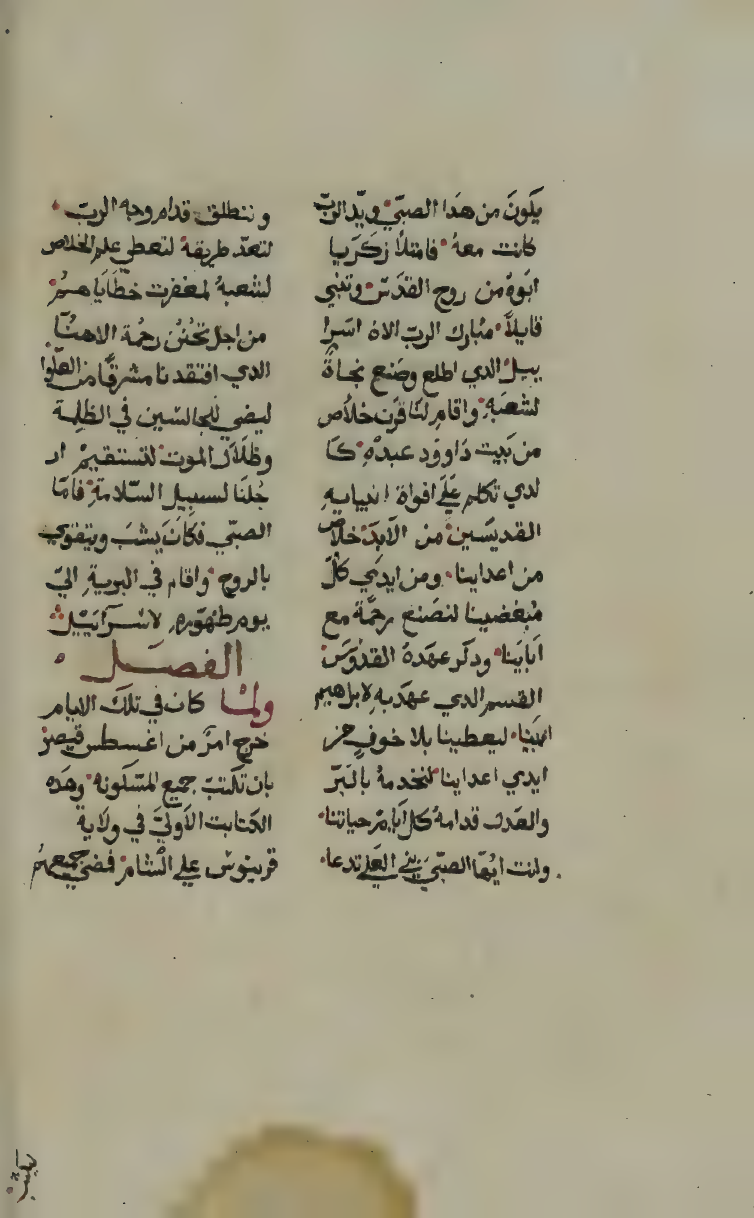 يكون من هدا الصبي ويد الرب
كانت معه فامتلا زكريا
ابوه من روح القدس وتنبي
قايلا مبارك الرب الاه اسرا
ييل الدي اطلع وصنع نجاة
لشعبه واقام لنا قرن خلاص
من بيت داوود عبده كا
لدي تكلم علي افواة انبيايه
القديسين من الابد خلاص
من اعداينا ومن ايدي كل
مبغضينا لنصنع رحمة مع
ابايينا ودكر عهده القدوس
القسم الدي عهد به لابراهيم
ابينا ليعطينا بلا خوف من
ايدي اعداينا لنخدمه بالبر
والعدل قدامه كل ايام حياتنا
وانت ايها الصبي نبي العلي تدعا
وتنطلق قدام وجه الرب
لتعد طريقه لتعطي علم الخلاص
لشعبه لمغفرت خطاياهم
من اجل تحنن رحمة الاهنا
الدي افتقدنا مشرقا من العلوا
ليضي للجالسين في الظلمة
وظلال الموت لتستقيم ار
جلنا لسبيل السلامة فاما
الصبي فكان يشب ويتقوي
بالروح واقام في البرية الي
يوم ظهوره لاسرآييل
الفصل
ولما كان في تلك الايام
خرج امر من اغسطس قيصر
بان تكتب جميع المسكونه وهده
الكتابت الاولي في ولاية
قرينوس علي الشام فمضي جميعهم